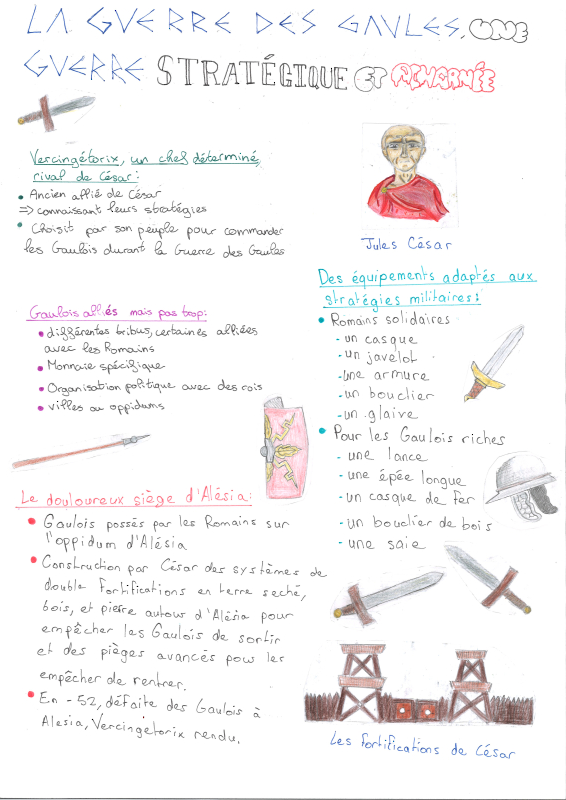 LA GUERRE DES GAULES, UNE
GUERRE STRATÉGIQUE ET ACHARNÉE
Vercingétorix, un chef déterminé,
rival de César :
• Ancien allié de César
=> connaissant leurs stratégies
• Choisit par son peuple pour commander
les Gaulois durant la Guerre des Gaules
Gaulois alliés mais pas trop:
• différentes tribus, certaines alliées
avec les Romains
• Monnaie spécifique
• Organisation politique avec des rois
• villes ou oppidums
Le douloureux siège d'Alésia:
• Gaulois possés par les Romains sur
l'oppidum d'Alésia
• Construction par César des systèmes de
double fortifications en terre seché,
bois, et pierre autour d'Alésia pour
empêcher les Gaulois de sortir
et des pièges avancés pour les
empêcher de rentrer.
• En -52, défaite des Gaulois à
Alesia, Vercingétorix rendu.
Jules César
Des équipements adaptés aux
stratégies militaires:
• Romains solidaires
- un casque
- un javelot
- une armure
- un bouclier
- un glaive
• Pour les Gaulois riches
- une lance
- une épée longue
- un casque de fer
- un bouclier de bois
- une saie
Les fortifications de César